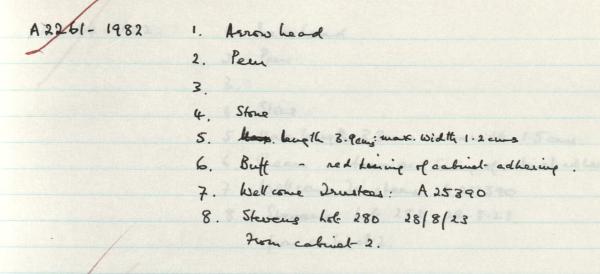 A2261-1982 1. Arrow head
2. Peru
3.
4. Stone
5. length 3.9cms: max. width 1.2cms
6. Buff - red lining of cabinet adhering.
7. Wellcome Trustees: A25390
8. Stevens lot 280 28/8/23
From cabinet 2.